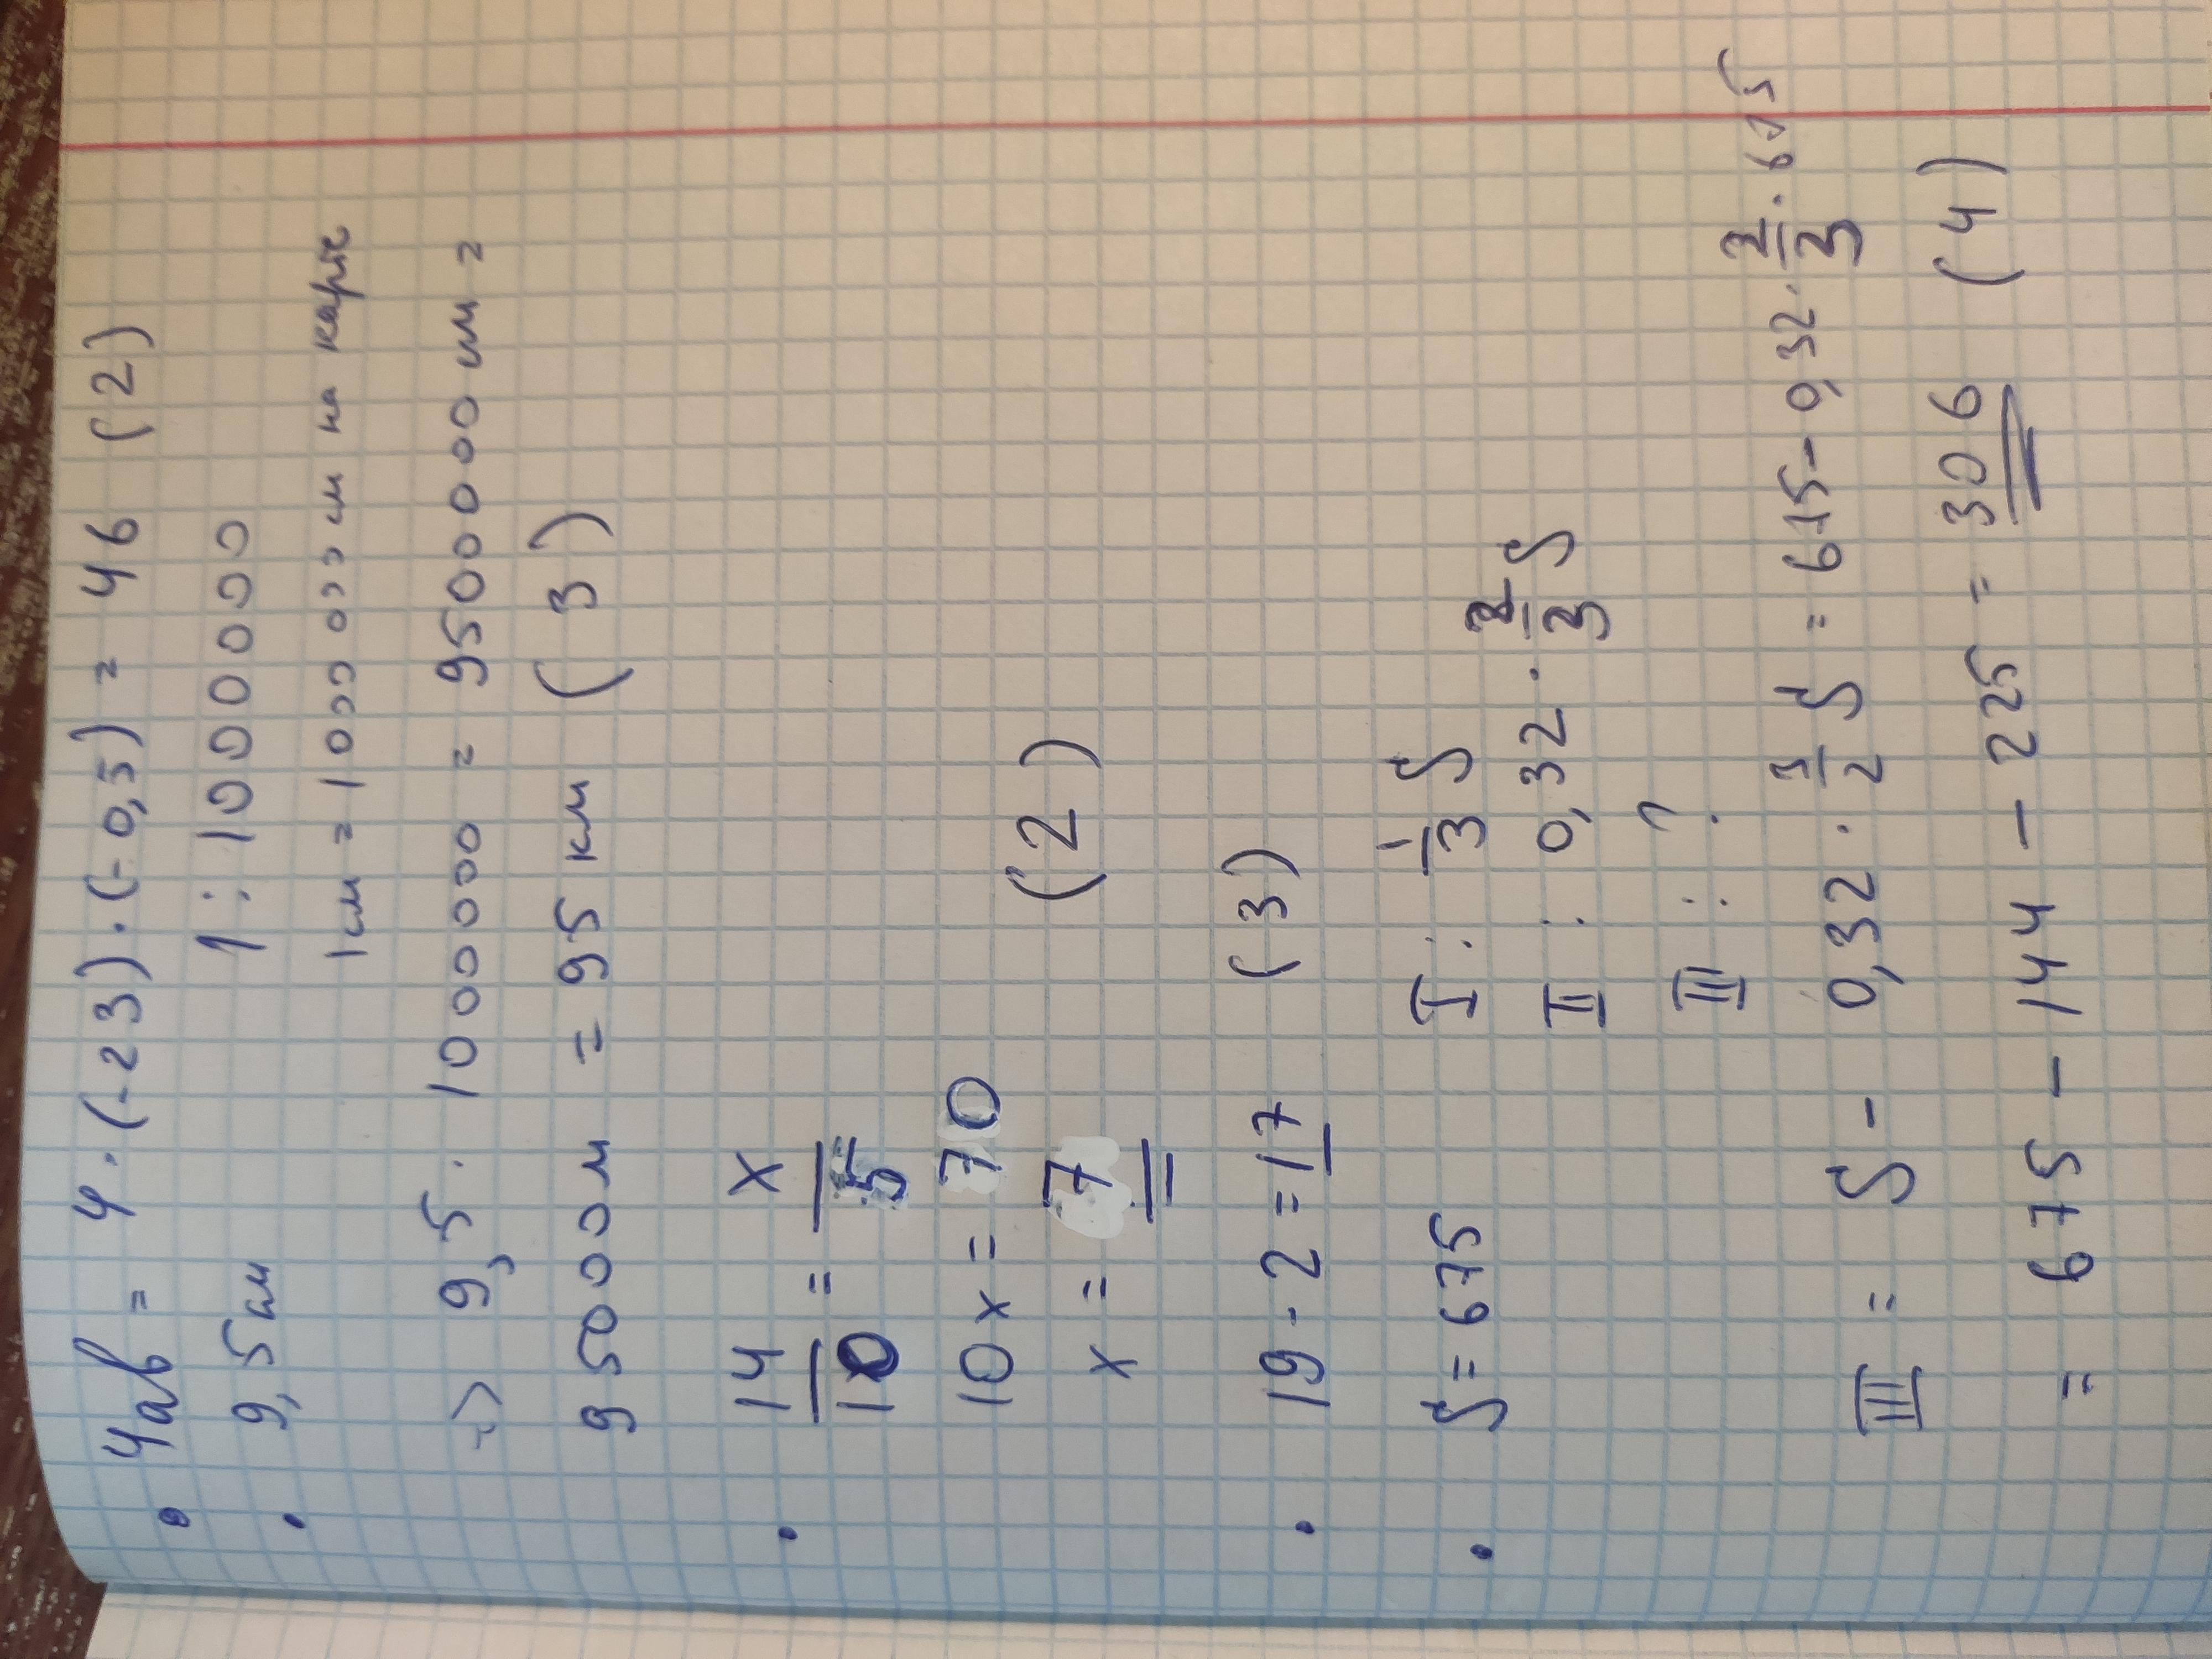 • 4ab = 4·(-23)·(-0,5) = 46 (2)
• 9,5 см 1 : 1000000
1 см = 1000 000 см на карте
=> 9,5 · 1000000 = 9500000 см =
95000 м = 95 км (3)
• 14/10 = x/5
10x = 70
x = 7 (2)
• 19 - 2 = 17 (3)
• S = 675 I : 1/3 S
II : 0,32 · 2/3 S
III : ?
III = S - 0,32 · 3/2 S = 675 - 0,32 · 2/3 · 675
= 675 - 144 - 225 = 306 (4)